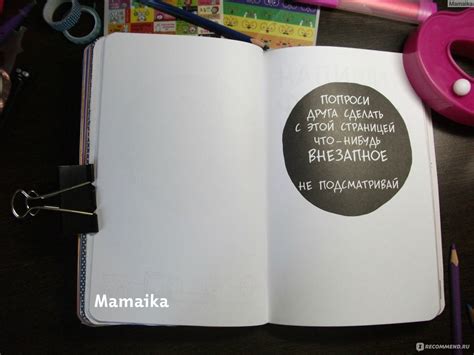 Mamaika
ПОПРОСИ
ДРУГА СДЕЛАТЬ
С ЭТОЙ СТРАНИЦЕЙ
ЧТО-НИБУДЬ
ВНЕЗАПНОЕ
НЕ ПОДСМАТРИВАЙ
Mamaika
RECOMMEND.RU